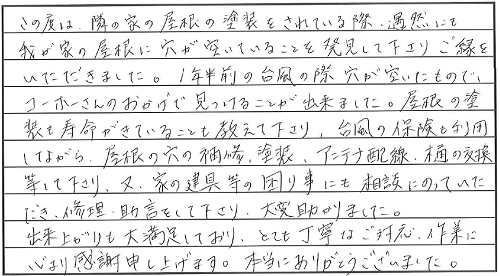 この度は、隣の家の屋根の塗装をされている際、偶然にて
我が家の屋根に穴が空いていることを発見して下さりご縁を
いただきました。1年半前の台風の際穴が空いたもので、
コーホーさんのおかげで見つけることが出来ました。屋根の塗
装も寿命がきていることも教えて下さり、台風の保険も利用
しながら、屋根の穴の補修、塗装、アンテナ配線、樋の交換
等して下さり、又、家の建具等の困り事にも相談にのっていた
だき、修理・助言をして下さり、大変助かりました。
出来上がりも大満足しており、とても丁寧なご対応、作業に
心より感謝申し上げます。本当にありがとうございました。